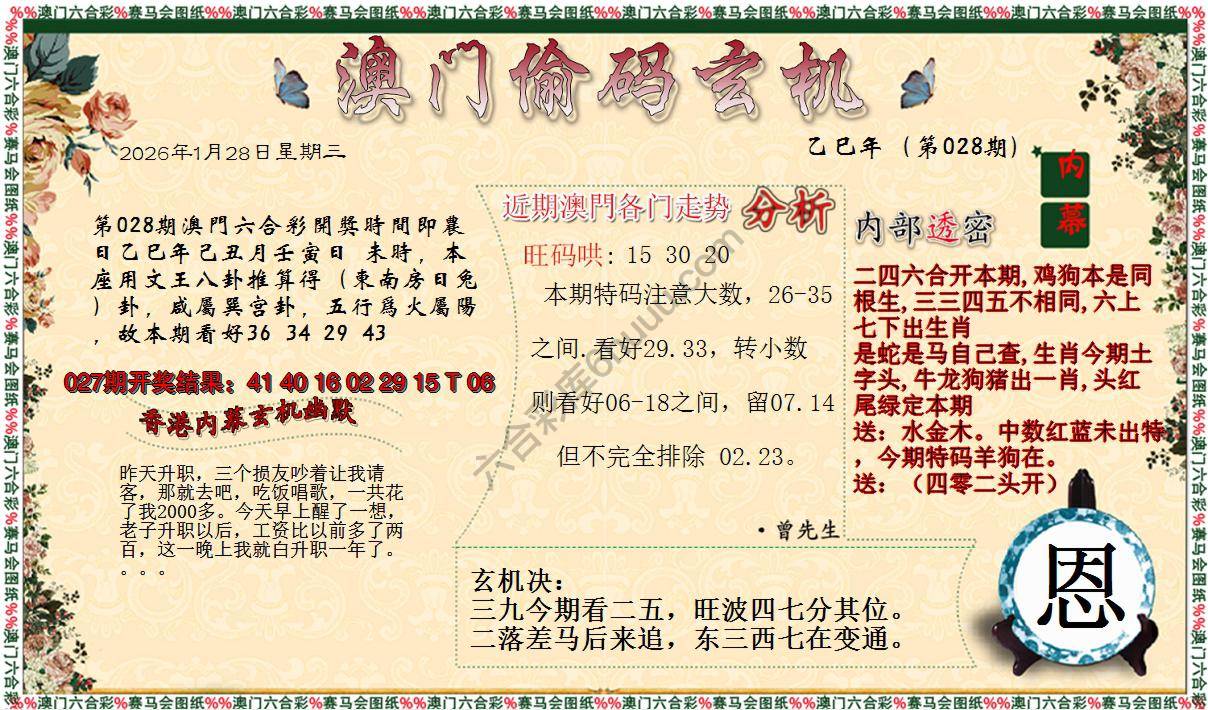 %%澳门六合彩%赛马会图纸%%澳门六合彩%赛马会图纸%%澳门六合彩%赛马会图纸%%澳门六合彩%赛马会图纸%%澳门六合彩%赛马会图纸%%澳门六合彩%赛马会图纸%%
澳门偷码玄机
2026年1月28日星期三
乙巳年（第028期）
内幕
第028期澳門六合彩開獎時間即農
日乙巳年己丑月壬寅日 未時，本
座用文王八卦推算得（東南房日兔
）卦，咸屬巽宫卦，五行爲火屬陽
，故本期看好36 34 29 43
027期开奖结果：41 40 16 02 29 15 T 06
香港内幕玄机幽默
昨天升职，三个损友吵着让我请
客，那就去吧，吃饭唱歌，一共花
了我2000多。今天早上醒了一想，
老子升职以后，工资比以前多了两
百，这一晚上我就白升职一年了。
。。。
近期澳門各门走势 分析
旺码哄: 15 30 20
本期特码注意大数，26-35
之间.看好29.33，转小数
则看好06-18之间，留07.14
但不完全排除 02.23。
·曾先生
内部透密
二四六合开本期,鸡狗本是同
根生,三三四五不相同,六上
七下出生肖
是蛇是马自己查,生肖今期土
字头,牛龙狗猪出一肖,头红
尾绿定本期
送：水金木。中数红蓝未出特
，今期特码羊狗在。
送：（四零二头开）
玄机决：
三九今期看二五，旺波四七分其位。
二落差马后来追，东三西七在变通。
恩